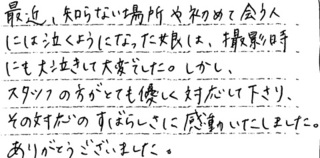 最近、知らない場所や初めて会う人
には泣くようになった娘は、撮影時
にも大泣きして大変でした。しかし、
スタッフの方がとても優しく対応して下さり、
その対応のすばらしさに感動いたしました。
ありがとうございました。